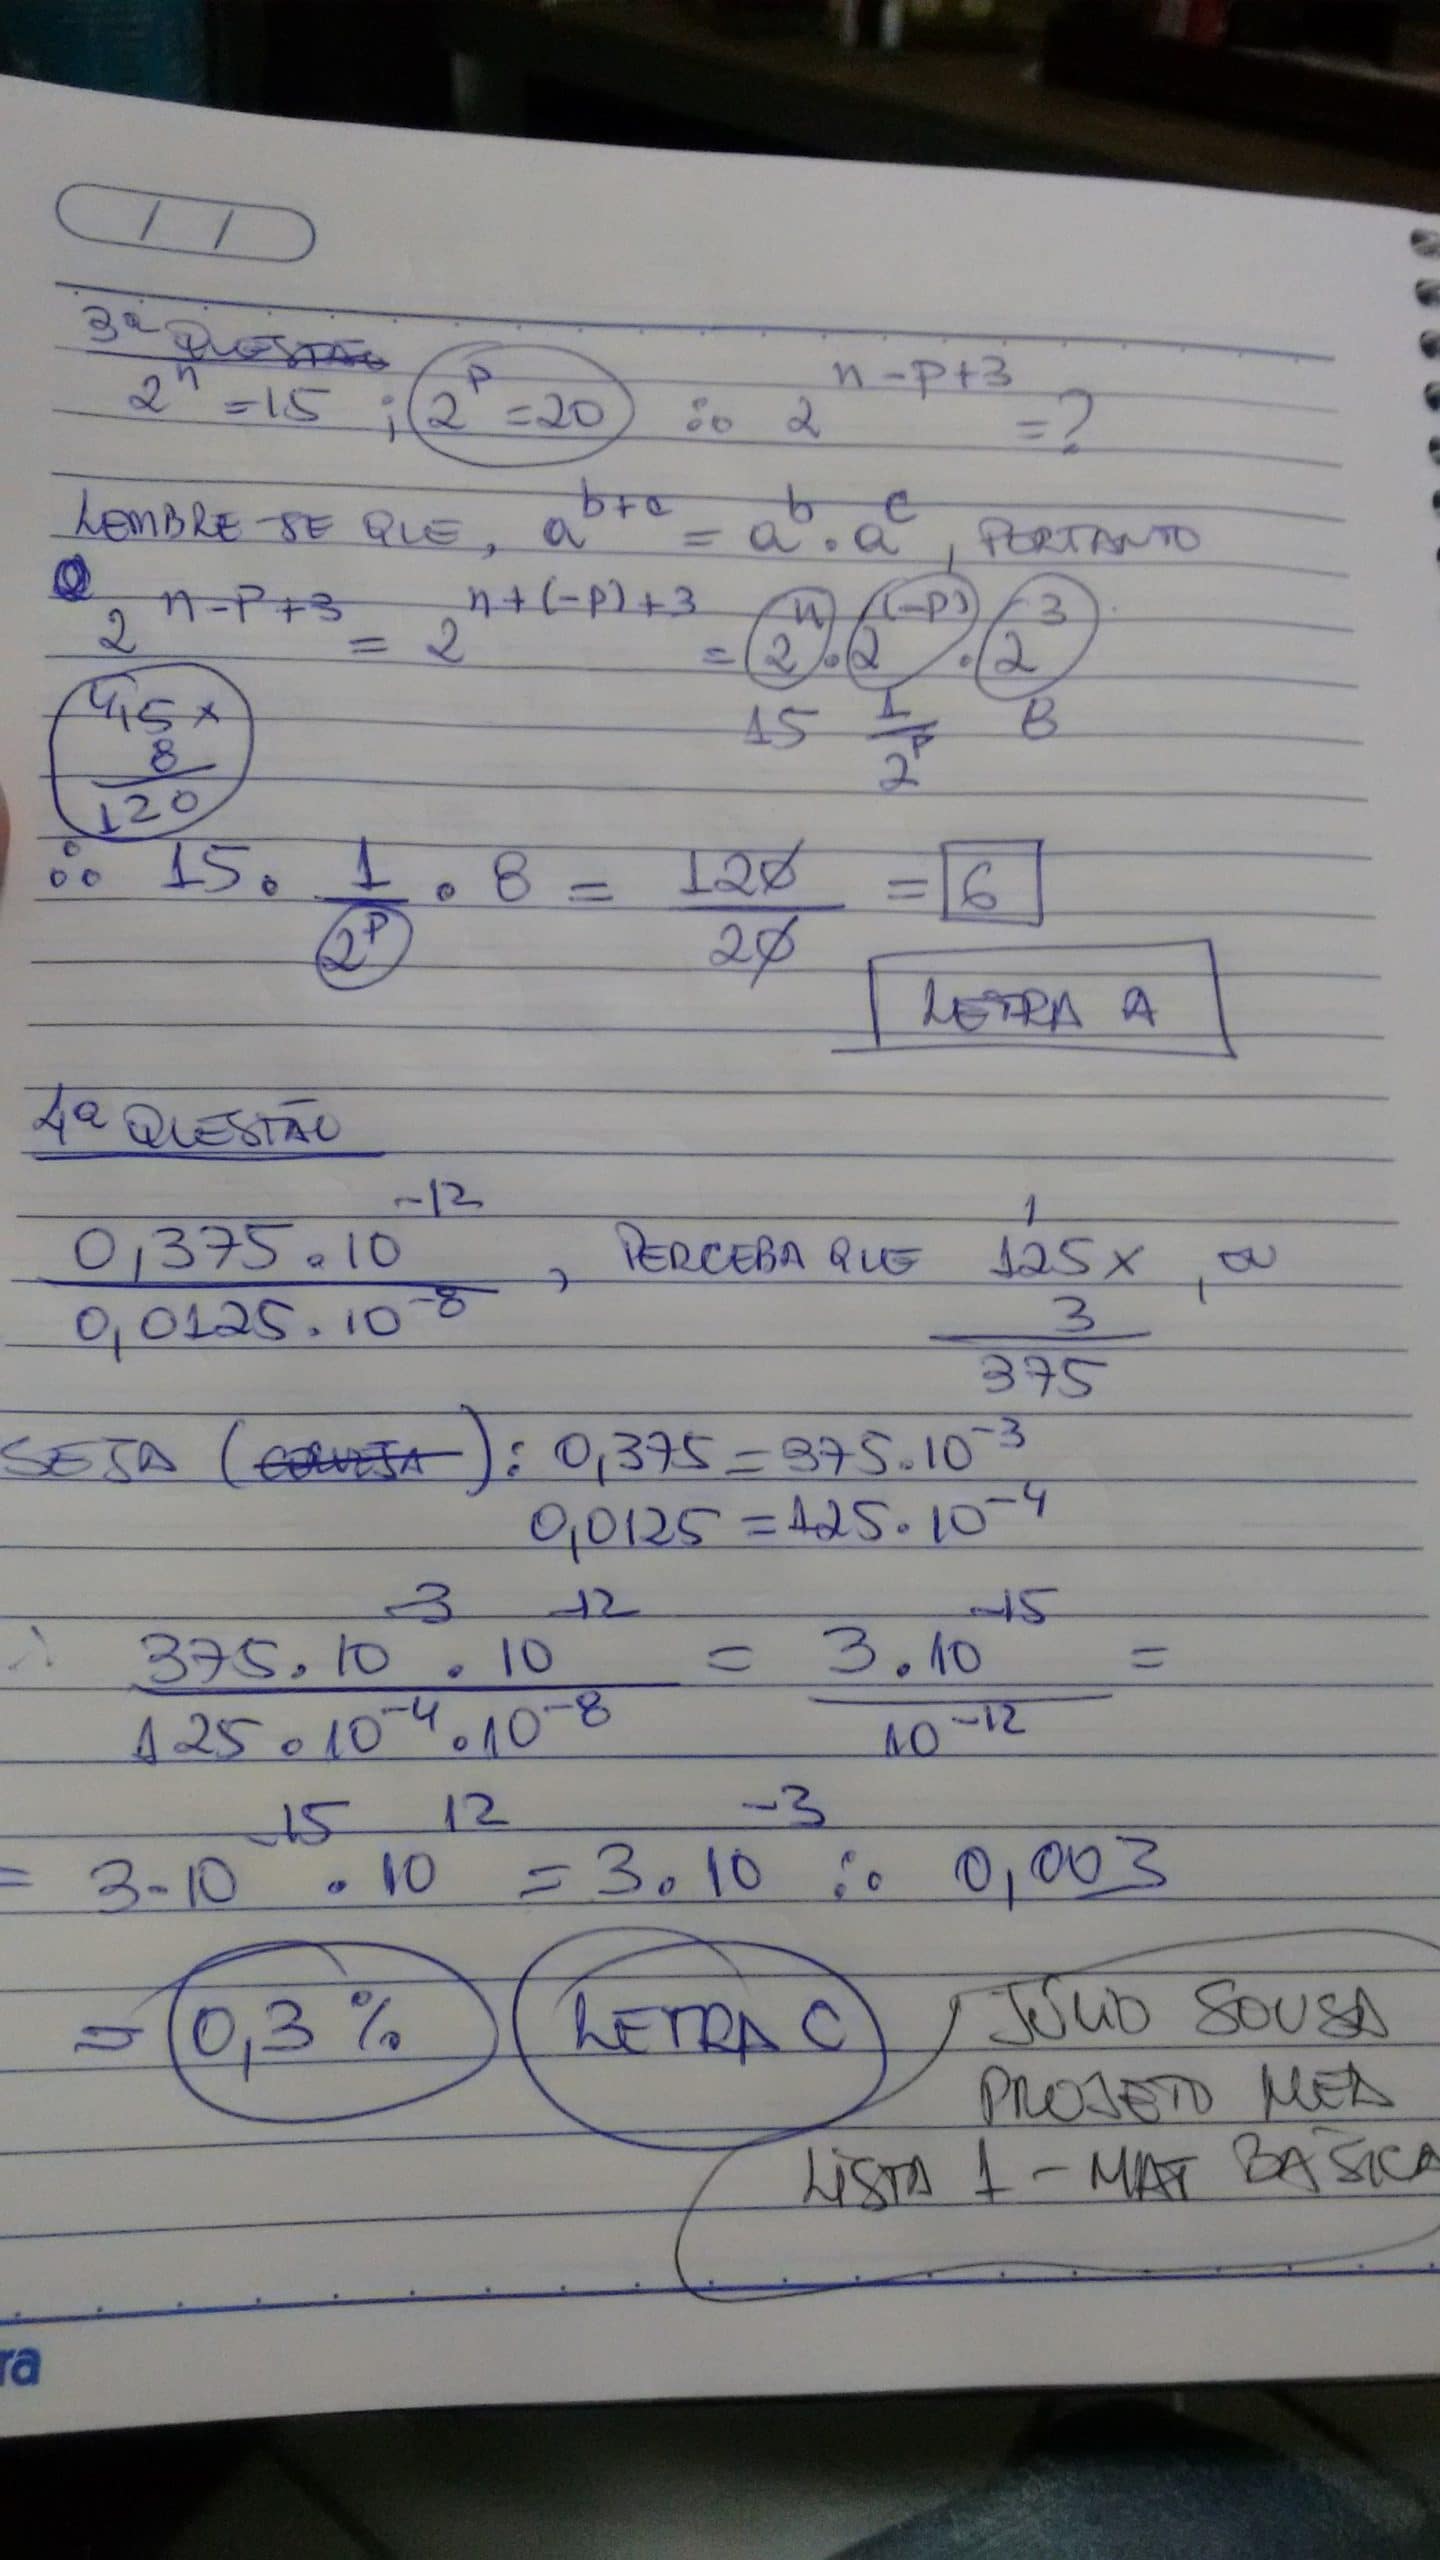 / /
3ª QUESTÃO
2^n = 15 ; 2^p = 20 ∴ 2^(n-p+3) = ?
LEMBRE-SE QUE, a^(b+c) = a^b . a^c, PORTANTO
2^(n-p+3) = 2^(n+(-p)+3) = 2^n . 2^(-p) . 2^3
15 1/2^p 8
4
15 x
8
120
∴ 15 . 1/2^p . 8 = 120/20 = 6
LETRA A
4ª QUESTÃO
0,375.10^-12 / 0,0125.10^-8 , PERCEBA QUE 125 x 3 , OU
1
375
SEJA ( ): 0,375 = 375.10^-3
0,0125 = 125.10^-4
∴ 375.10^-3 . 10^-12 / 125.10^-4 . 10^-8 = 3.10^-15 / 10^-12 =
= 3.10^-15 . 10^12 = 3.10^-3 ∴ 0,003
= 0,3% LETRA C
JÚLIO SOUSA
PROJETO MED
LISTA 1 - MAT BÁSICA
ra